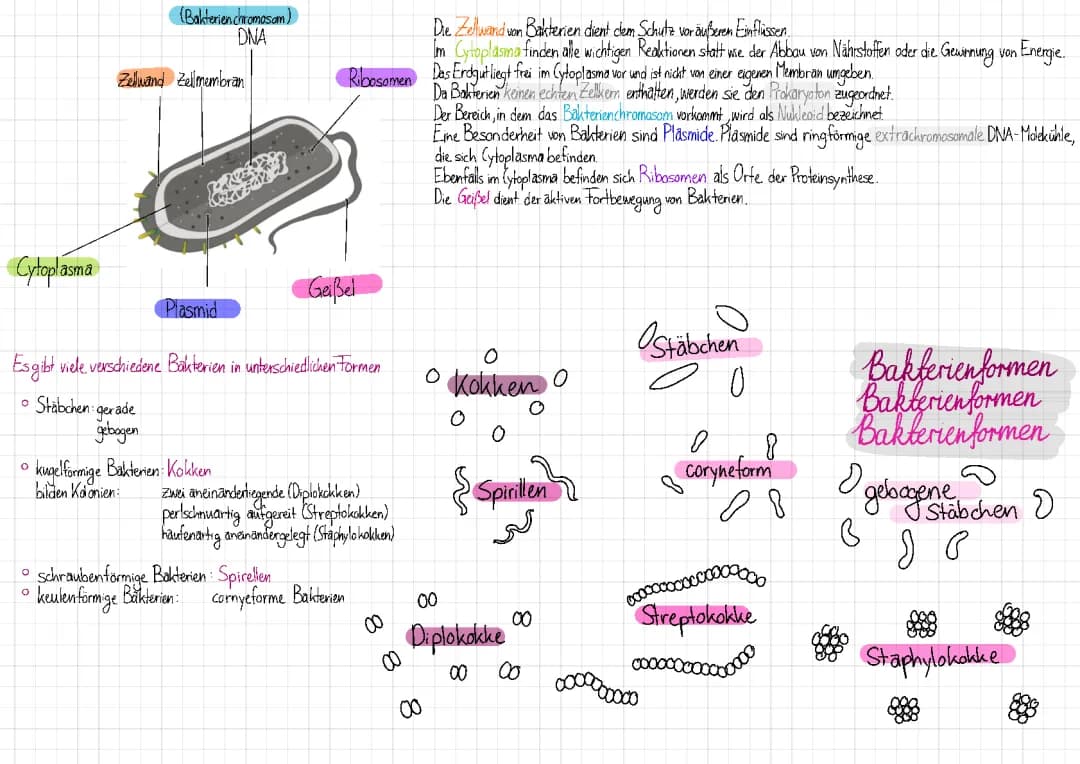 (Bakterienchromosom)
DNA
Zellwand Zellmembran
Ribosomen
Cytoplasma
Plasmid
Geißel
Die Zellwand von Bakterien dient dem Schutz vor äußeren Einflüssen.
Im Cytoplasma finden alle wichtigen Reaktionen statt wie der Abbau von Nährstoffen oder die Gewinnung von Energie.
Das Erdgut liegt frei im Cytoplasma vor und ist nicht von einer eigenen Membran umgeben.
Da Bakterien keinen echten Zellkern enthalten, werden sie den Prokaryoten zugeordnet.
Der Bereich, in dem das Bakterienchromosom vorkommt, wird als Nukleoid bezeichnet.
Eine Besonderheit von Bakterien sind Plasmide. Plasmide sind ringförmige extrachromosomale DNA-Molekühle,
die sich Cytoplasma befinden.
Ebenfalls im Cytoplasma befinden sich Ribosomen als Orte der Proteinsynthese.
Die Geißel dient der aktiven Fortbewegung von Bakterien.
Es gibt viele verschiedene Bakterien in unterschiedlichen Formen
° Stäbchen: gerade
gebogen
° kugelförmige Bakterien: Kokken
bilden Kolonien: zwei aneinanderliegende (Diplokokken)
perlschnuartig aufgereit (Streptokokken)
haufenartig aneinandergelegt (Staphylokokken)
° schraubenförmige Bakterien: Spirellen
° keulenförmige Bakterien: cornyeforme Bakterien
Kokken
Stäbchen
Bakterienformen
Bakterienformen
Bakterienformen
Spirillen
coryneform
gebogene
Stäbchen
Diplokokke
Streptokokke
Staphylokokke